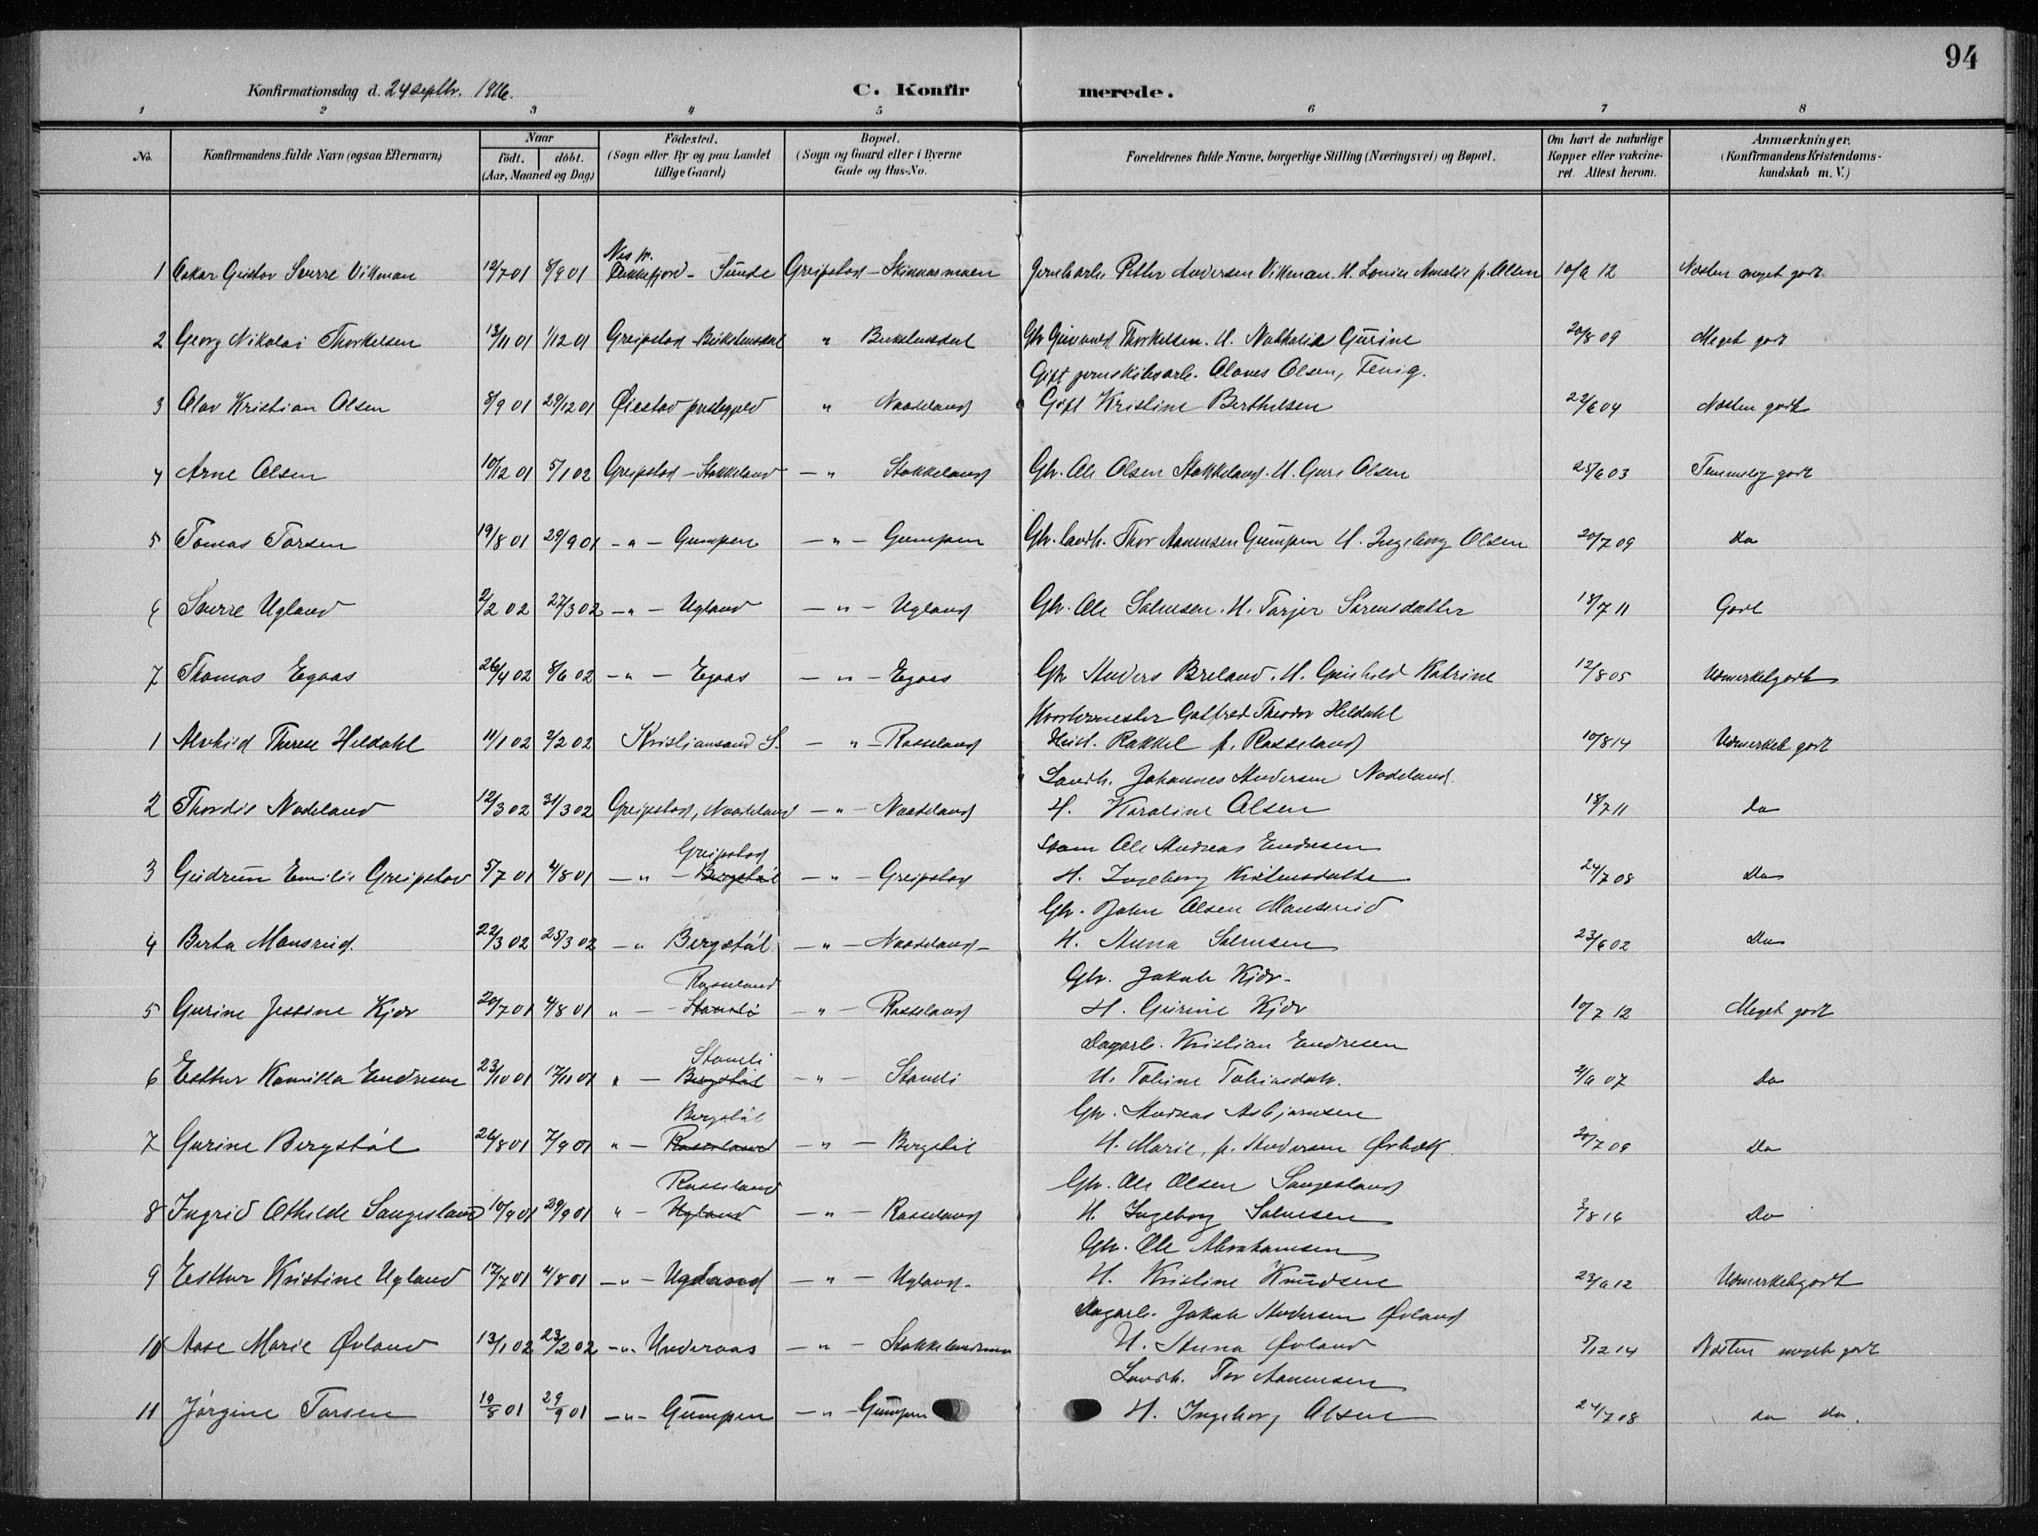 94
Konfirmationsdag d. 24 septbr. 1916.
C. Konfirmerede.
1 2 3 4 5 6 7 8
No.
Konfirmandens fulde Navn (ogsaa Efternavn)
Naar
født. døbt.
(Aar, Maaned og Dag)
Fødested.
(Sogn eller By og paa Landet
tillige Gaard)
Bopæl.
(Sogn og Gaard eller i Byerne
Gade og Hus-No.
Forældrenes fulde Navne, borgerlige Stilling (Næringsvei) og Bopæl.
Om havt de naturlige
Kopper eller vakcine-
ret. Attest herom.
Anmærkninger.
(Konfirmandens Kristendoms-
kundskab m. V.)
Nes pr.
1 Oskar Gustav Sverre Vikman 12/7 01 8/9 01 Flekkefjord - Sunde Greipstad - Jernbarb. Petter Andersen Vikman. H. Lovise Amalie f. Olsen 10/9 12 Næsten meget godt
2 Georg Nikolai Thorkelsen 13/11 01 1/12 01 Greipstad " Gbr Thorkelsen. H. Nathalie Gurine 20/8 09 Meget godt
Gift Olaves Olsen, Tenig.
3 Olav Kristian Olsen 8/9 01 29/12 01 Øiestad prestegjeld " Naadeland Gift Kristine Berthelsen 22/6 04 Næsten godt
4 Arne Olsen 10/12 01 5/1 02 Greipstad - Stokkeland - " Stokkeland Gbr. Ole Olsen Stokkeland. H. Guri Olsen 25/6 03 Temmelig godt
5 Tomas Torsen 19/8 01 29/9 01 - " - Gumpen - " - Gumpen Gbr. landh. Thor Aanensen Gumpen H. Ingeborg Olsen 20/7 09 do
6 Sverre Ugland 2/2 02 27/3 02 - " - Ugland - " - Ugland Gbr. Ole Salvesen. H. Tarjer Sørensdatter 18/7 11 Godt
7 Thomas Egaas 26/4 02 8/6 02 - " - Egaas - " - Egaas Gbr Anders Breland. H. Gunhild Katrine 12/8 05 Udmerketgodt
Kvartermester Gotfred Theodor Heldahl
1 Alvhild Therese Heldahl 11/1 02 2/2 02 Kristiansand S. - " - Rosseland Hust. Rakkel f. Rosseland 10/8 14 Udmerket godt
Landh. Johannes Andersen Nodeland.
2 Thordis Nodeland 12/3 02 31/3 02 Greipstad, Naadeland - " - Naadeland H. Karoline Olsen 18/7 11 do
Greipstad
Ole Andreas Endresen
3 Gudrun Emilie Greipstad 5/7 01 4/8 01 - " - Bergstøl - " - Greipstad H. Ingeborg Kristensdatter 24/7 08 Do
Gbr. John Olsen Mansrud
4 Berta Mansrud. 22/3 02 25/3 02 - " Bergstøl - " - Naadeland - H. Anna Salvesen 23/6 02 Do
Rosseland
Gbr. Jakob Kjær -
5 Gurine Jessine Kjær 20/7 01 4/8 01 " - Stemli - " - Rosseland H. Gurine Kjær 10/7 12 Meget godt
Stemli
Dagarb. Kristian Endresen
6 Esther Kamilla Endresen 23/10 01 17/11 01 " - Bergstøl - " - Stemli H. Tobine Tobiasdatr. 2/9 07 Do
Bergstøl
Gbr. Andreas Asbjørnsen
7 Gurine Bergstøl 26/8 01 7/9 01 " - Rosseland - " - Bergstøl H. Marie, f. Andersen Øvbæk 21/7 09 Do
Rosseland
Gbr. Ole Olsen Sangesland
8 Ingrid Othilde Sangesland 10/9 01 29/9 01 " - Ugland - " - Rosseland H. Ingeborg Salvesen 3/8 16 Do
Gbr. Ole Abrahamsen
9 Esther Kristine Ugland 17/7 01 4/8 01 - " - Ugland - " - Ugland. H. Kristine Knudsen 23/9 12 Udmerketgodt
Dagarb. Jakob Andersen Øvland
10 Aase Marie Øvland 13/1 02 23/2 02 - " - Underaas - " - H. Anna Øvland 5/12 14 Næsten meget godt
Landh. Tor Aanensen
11 Jørgine Torsen 19/8 01 29/9 01 - " - Gumpen - " - Gumpen H. Ingeborg Olsen 24/7 08 do do.